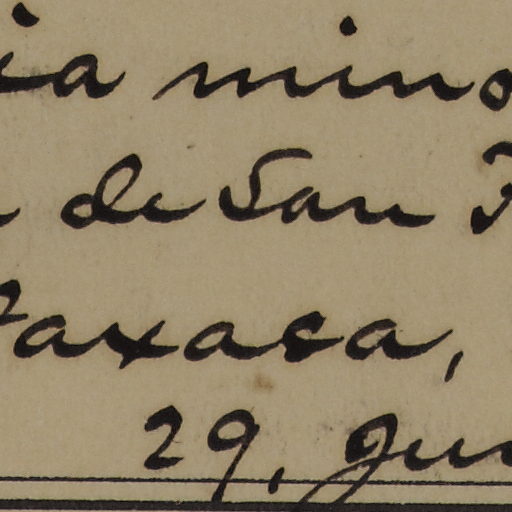 ia mino
de San F
Oaxaca,
29, Jun